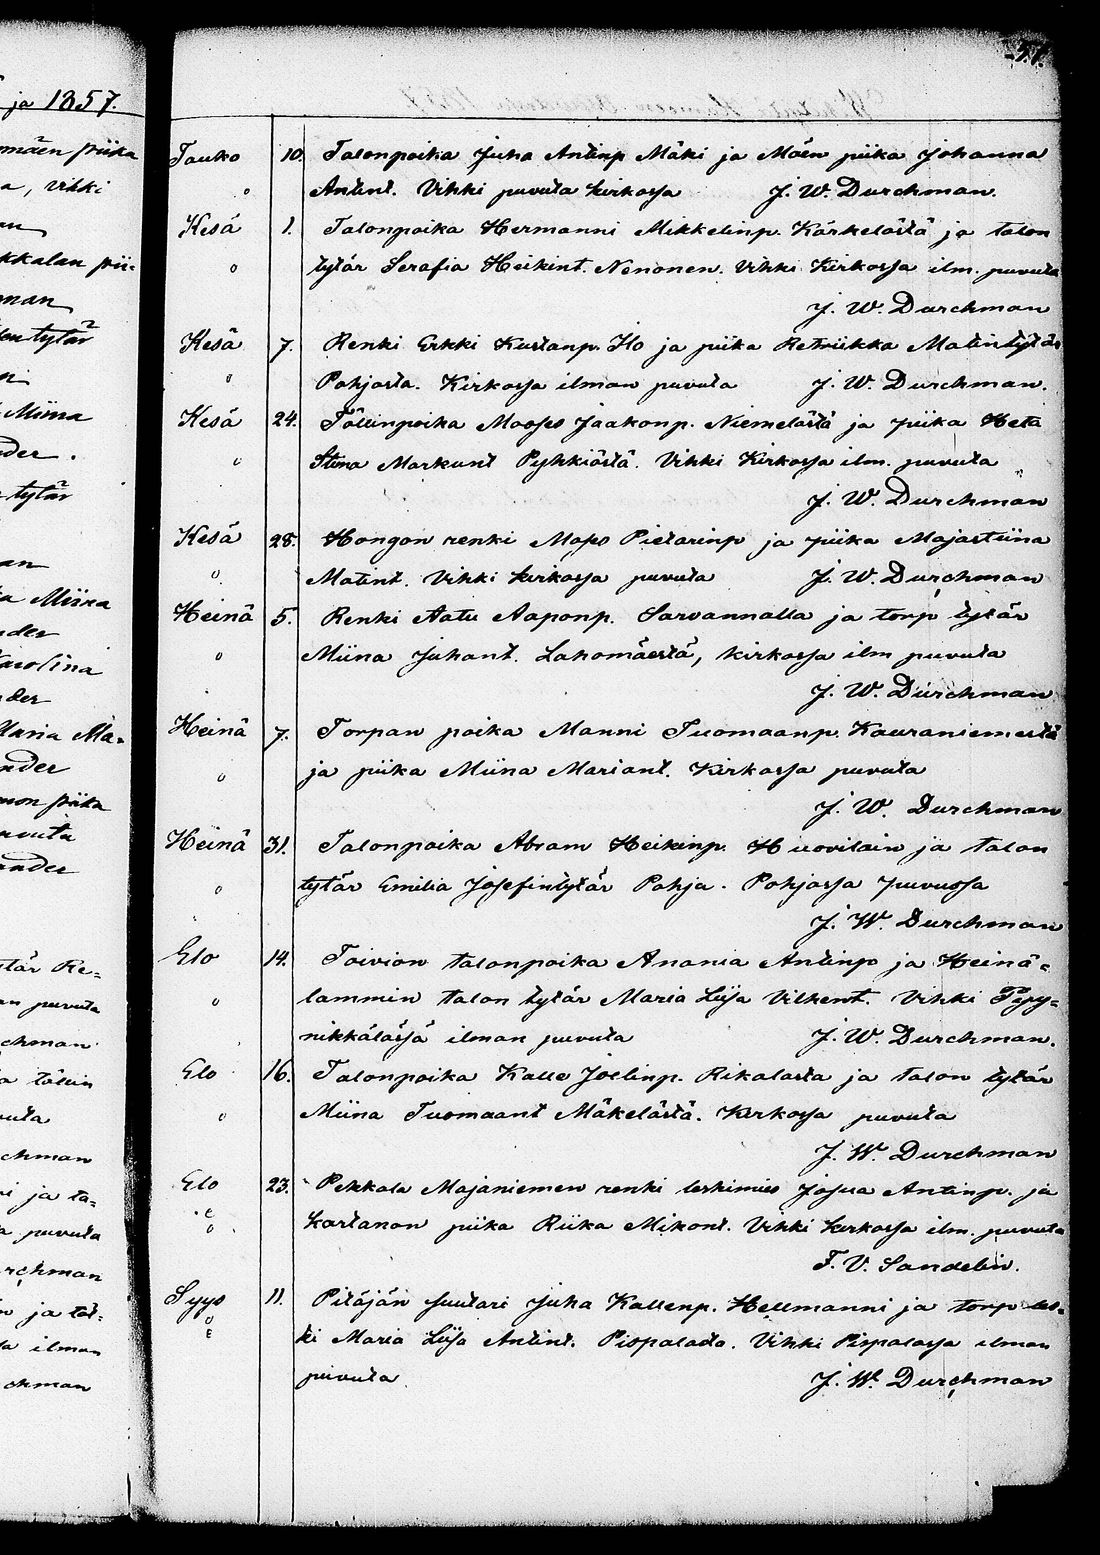 ja 1857.
mäen piika
a, vihki
kkalan pii-
man
tytär
Miina
nder.
tytär
an
ja Miina
nder
Karolina
nder
Maria Ma-
nder
mon piika
puvuta
ander
tytär Re-
an puvuta
chman
ja töllin
vuta
chman
ni ja ta-
a puvuta
rchman
n ja tal-
sa ilman
chman
57.
Touko 10. Talonpoika Juha Antinp Mäki ja Mäen piika Johanna
Antint. Vihki puvuta kirkossa J. W. Durchman.
Kesä 1. Talonpoika Hermanni Mikkelinp. Kärkelästä ja talon
tytär Serafia Heikint. Nenonen. Vihki Kirkossa ilm. puvuta
J. W. Durchman
Kesä 7. Renki Erkki Kustanp. Ilo ja piika Retriikka Matintytär
Pohjasta. Kirkossa ilman puvuta J. W. Durchman.
Kesä 24. Töllinpoika Mooses Jaakonp. Niemelästä ja piika Heta
Stina Markunt Pyhkiöstä. Vihki Kirkossa ilm. puvuta
J. W. Durchman
Kesä 28. Hongon renki Moses Pietarinp ja piika Majastiina
Matint. Vihki kirkossa puvuta J. W. Durchman
Heinä 5. Renki Aatu Aaponp. Sarvannalla ja torp tytär
Miina Juhant. Lahomäestä, kirkossa ilm puvuta
J. W. Durchman
Heinä 7. Torpan poika Manni Tuomaanp. Kauraniemestä
ja piika Miina Mariant. Kirkossa puvuta
J. W. Durchman
Heinä 31. Talonpoika Abram Heikinp. Huovilain ja talon
tytär Emilia Josefintytär Pohja. Pohjassa puvussa
J. W. Durchman
Elo 14. Toivion talonpoika Anania Antinp ja Heinä-
lammin talon tytär Maria Liisa Vilhent. Vihki Pyy-
nikkälässä ilman puvuta J. W. Durchman.
Elo 16. Talonpoika Kalle Joelinp. Rikalasta ja talon tytär
Miina Tuomaant Mäkelästä. Kirkossa puvuta
J. W. Durchman
Elo 23. Pekkala Majaniemen renki leskimies Josua Antinp. ja
kartanon piika Riika Mikont. Vihki kirkossa ilm. puvuta
F. V. Sandelin.
Syys 11. Pitäjän suutari Juha Kallenp. Hellmanni ja torp les-
ki Maria Liisa Antint. Pispalasta. Vihki Pispalassa ilman
puvuta. J. W. Durchman